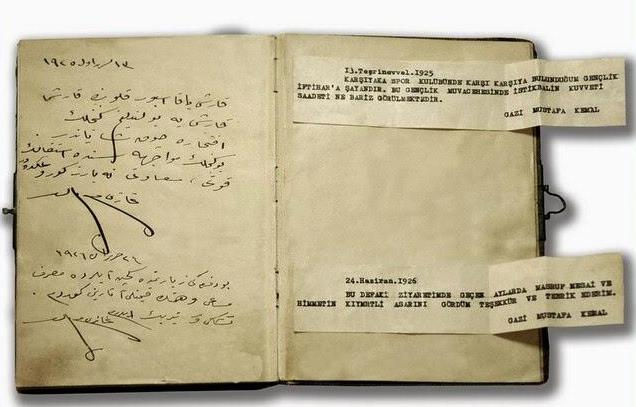 قارشی یاقا سپور قلوبنده قارشی
قارشی یه بولوندیغم کنجلك
افتخاره شایاندر
کنجلك مواجهه سنده استقبالك
قوتی، سعادتی نه بارز
غازی
حزیران ١٩٢٦
بو دفعه کی زیارتمده کچن آیلرده مصروف
مساعی و همتك قیمتلی آثارینی کوردم.
تشکر و تبریك ایدرم غازی
13.Teşrinevvel.1925
KARŞIYAKA SPOR KULÜBÜNDE KARŞI KARŞIYA BULUNDUĞUM GENÇLİK
İFTİHAR'A ŞAYANDIR. BU GENÇLİK MUVACEHESİNDE İSTİKBALİN KUVVETİ
SAADETİ NE BARİZ GÖRÜLMEKTEDİR.
GAZİ MUSTAFA KEMAL
24.Haziran.1926
BU DEFAKİ ZİYARETİMDE GEÇEN AYLARDA MASRUF MESAİ VE
HİMMETİN KIYMETLİ ASARINI GÖRDÜM TEŞEKKÜR VE TEBRİK EDERİM.
GAZİ MUSTAFA KEMAL